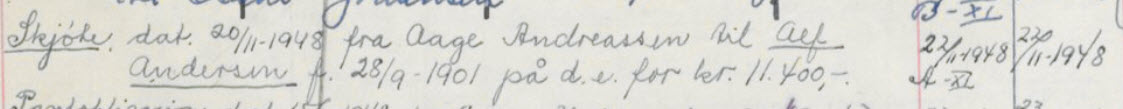 B-XI
Skjøte, dat. 20/11-1948 fra Aage Andreassen til Alf
22/11-1948 22/11-1948
Andersen f. 28/9-1901 på d.e. for kr. 11.400,-.
A-XI